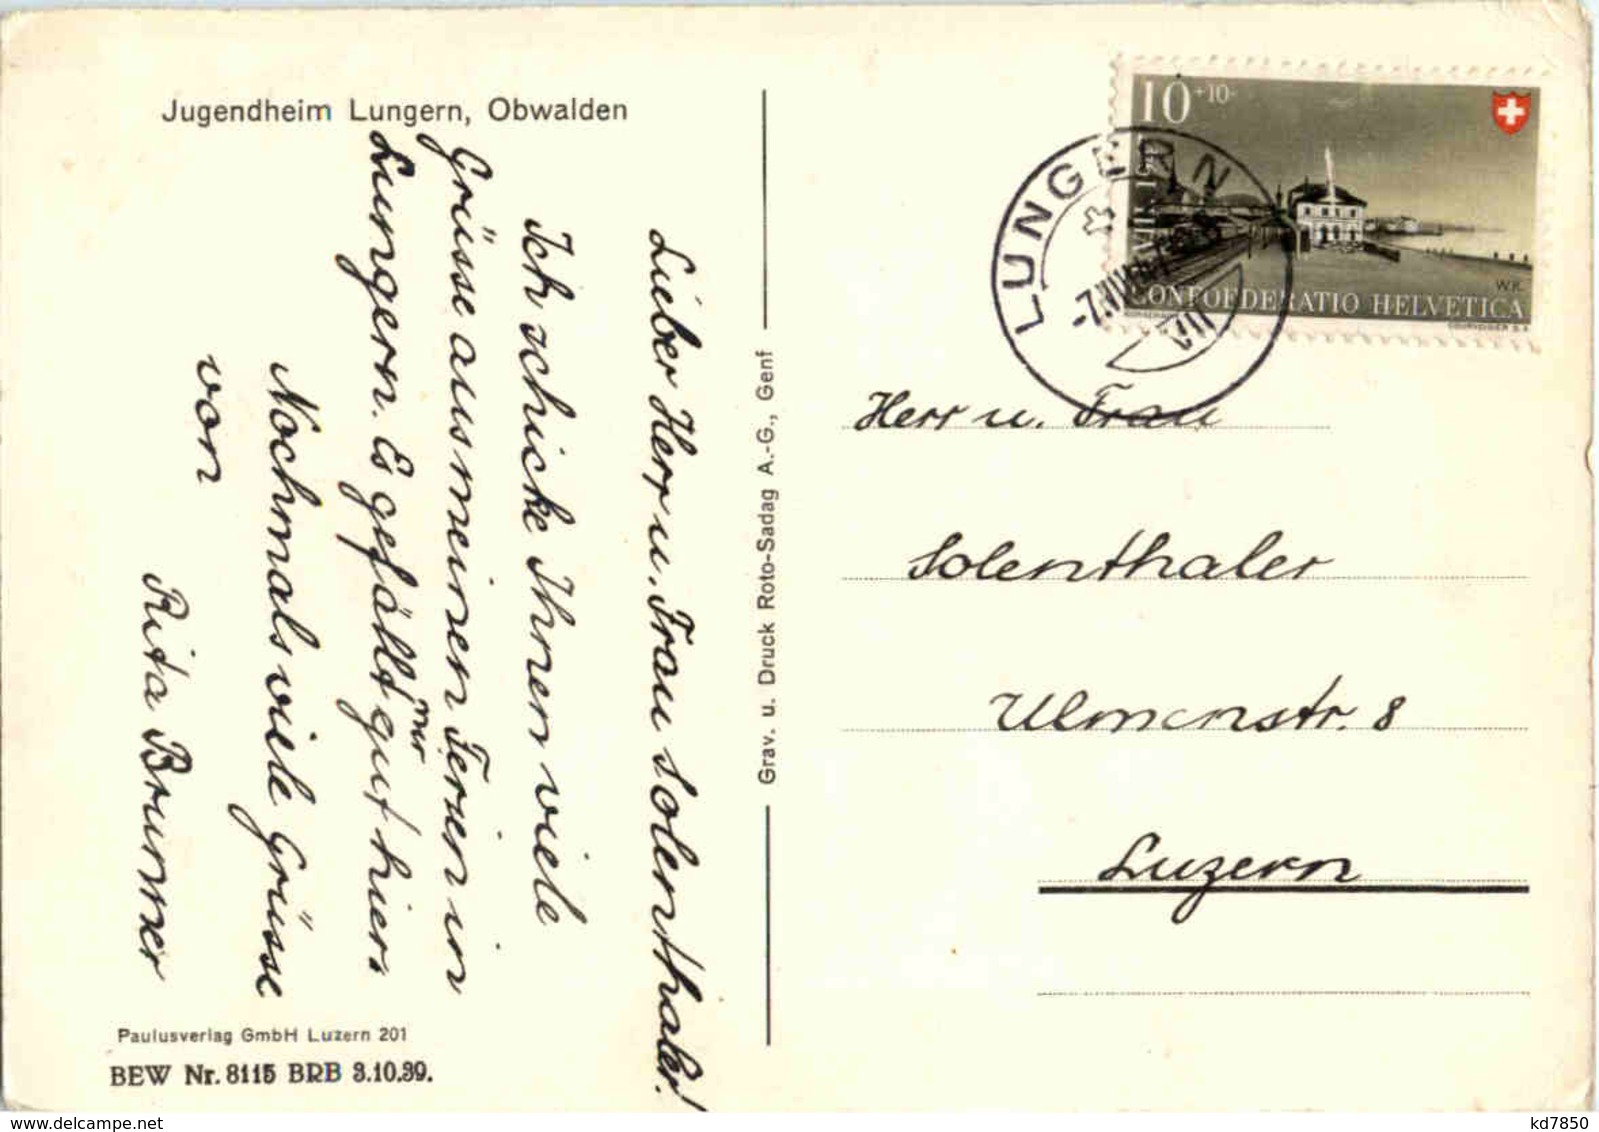 Jugendheim Lungern, Obwalden
Lieber Herr u. Frau Solenthaler!
Ich schicke Ihnen viele
Grüsse aus meinen Ferien in
Lungern. Es gefällt mir gut hier.
Nochmals viele Grüsse
von
Rita Brunner
Paulusverlag GmbH Luzern 201
BEW Nr. 8115 BRB 3.10.39.
Grav. u. Druck Roto-Sadag A.-G., Genf
10+10
CONFOEDERATIO HELVETICA
W.K.
COURVOISIER S.A.
LUNGERN
Herr u. Frau
Solenthaler
Ulmenstr. 8
Luzern
kd7850